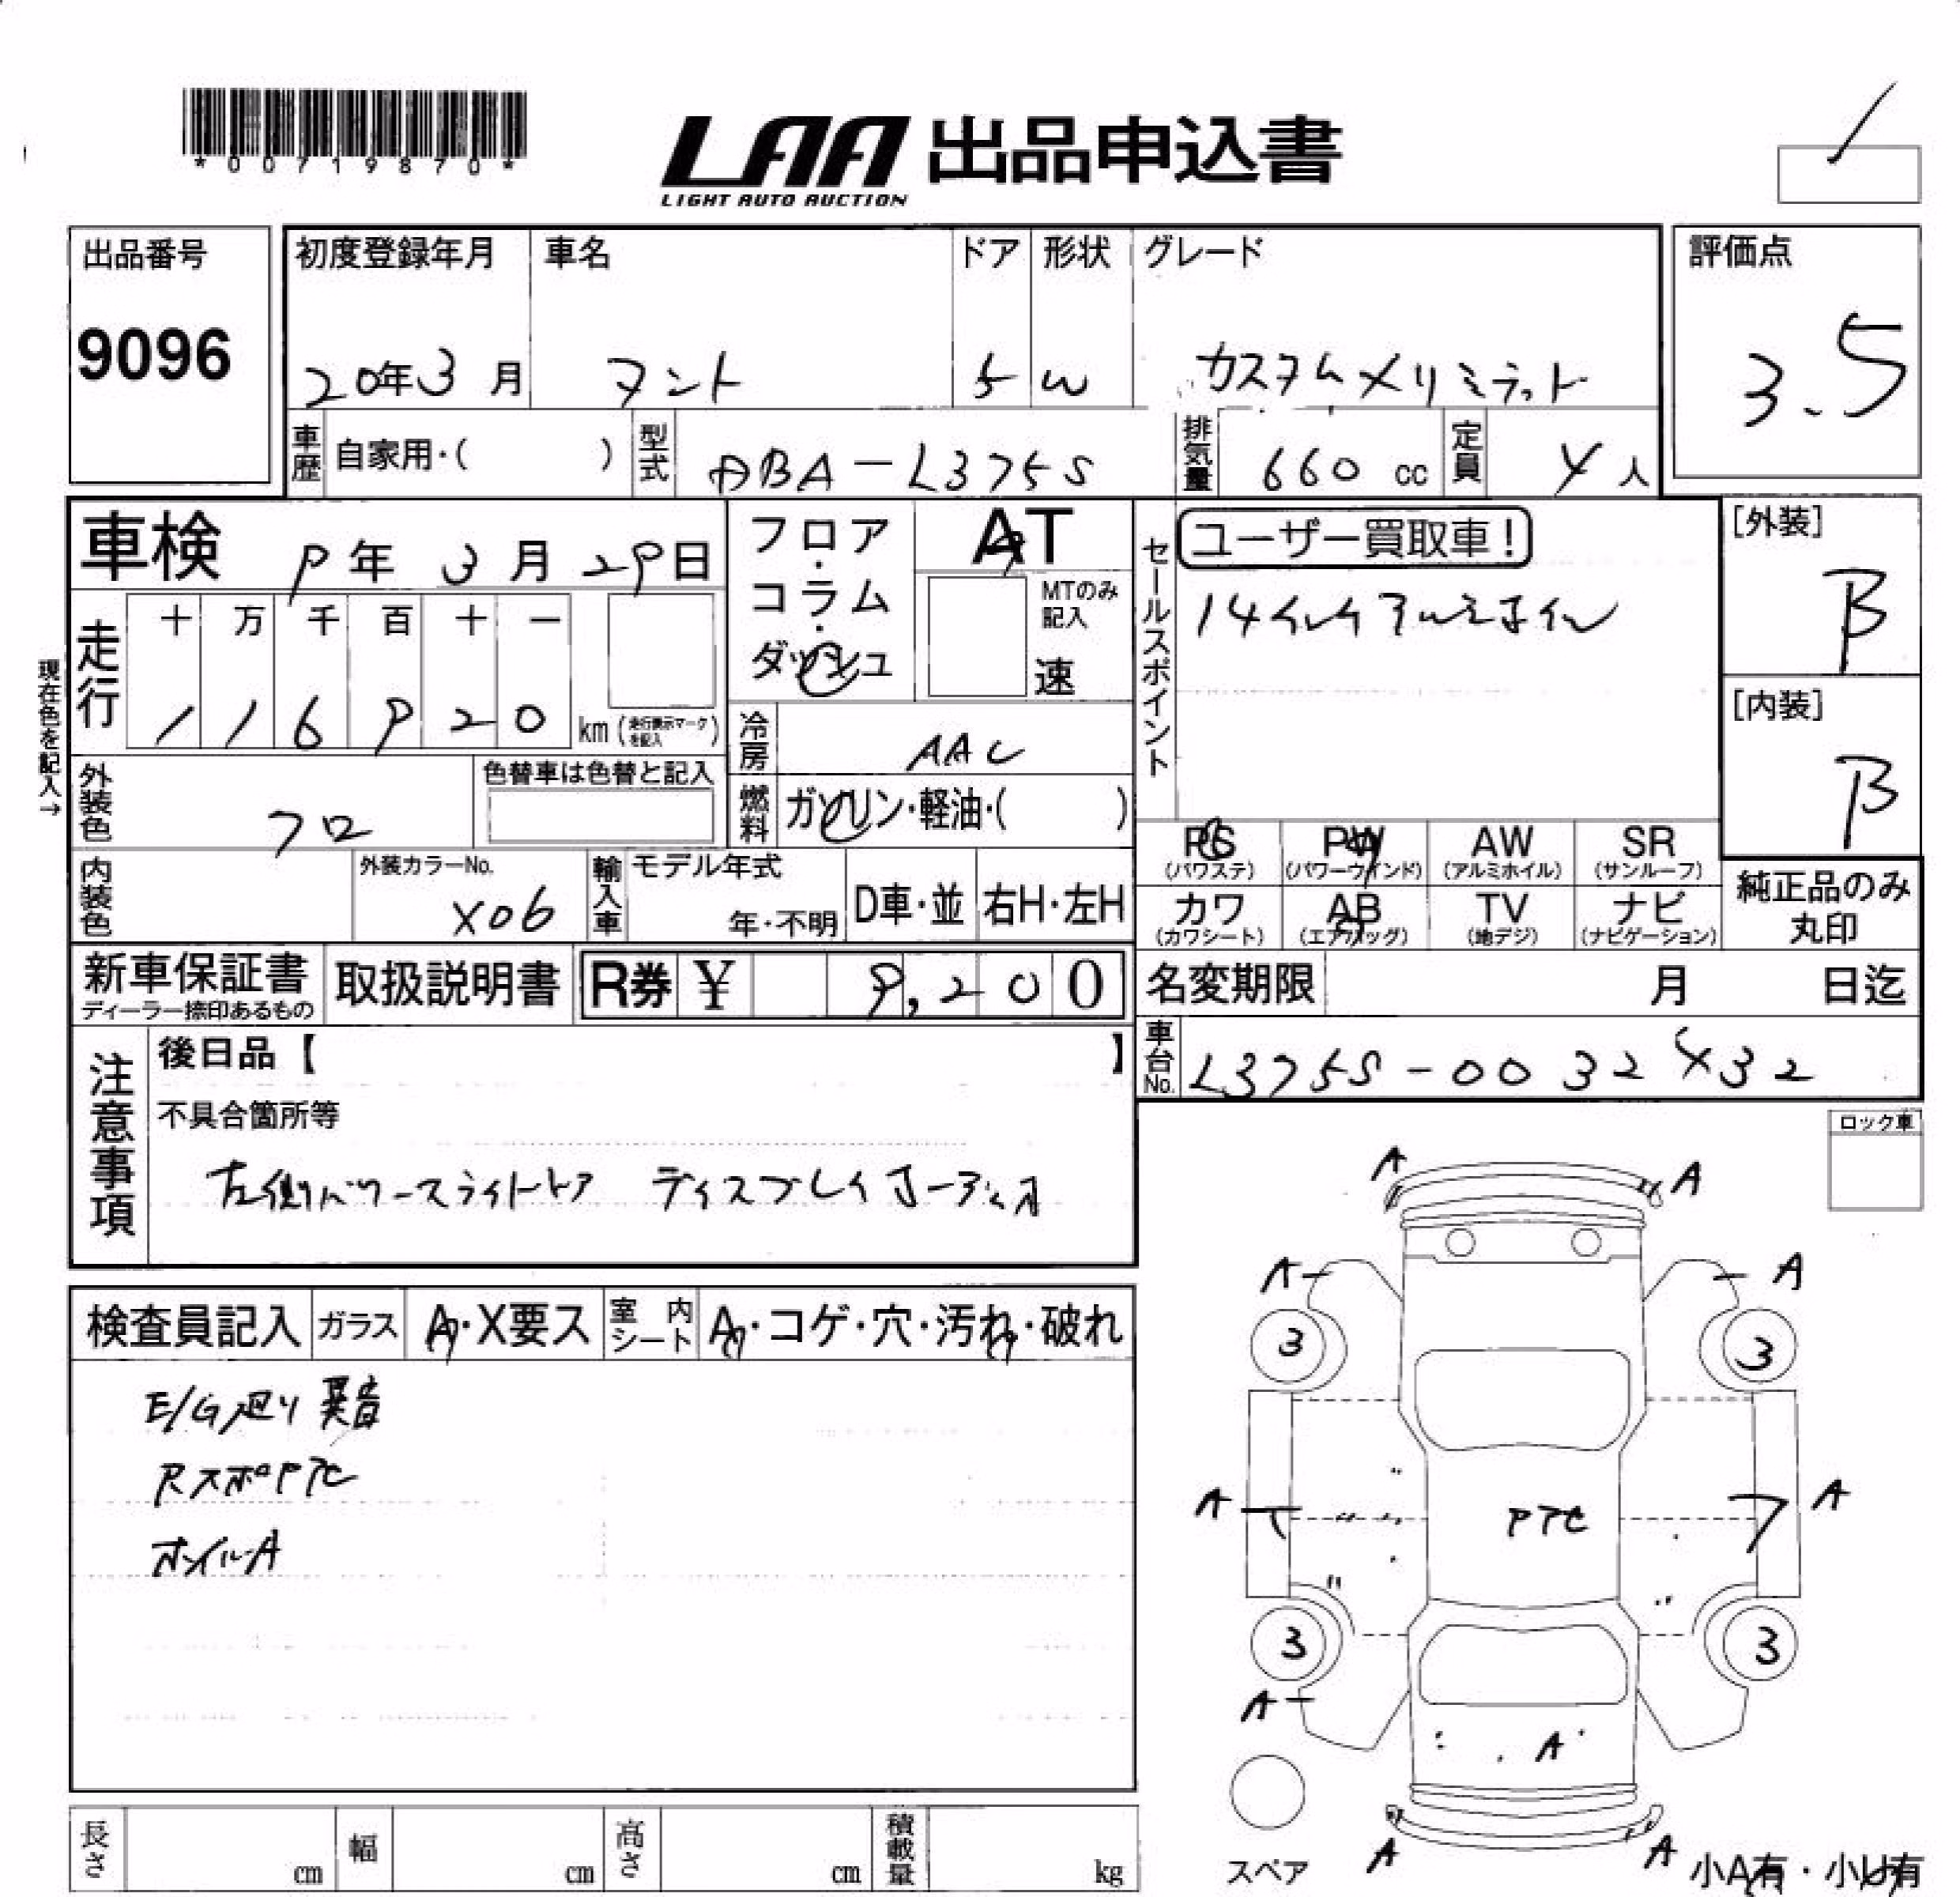 *00719870*
LAA 出品申込書
LIGHT AUTO AUCTION
出品番号
9096
初度登録年月 車名 ドア 形状 グレード
20年3月 タント 5 W カスタムメリミテット
評価点
3.5
車歴 自家用・( ) 型式 ABA-L375S 排気量 660 cc 定員 4人
車検 9年 3月 29日
フロア・コラム・ダッシュ
AT
MTのみ記入
速
セールスポイント
ユーザー買取車!
14インチアルミホイル
[外装]
B
[内装]
B
現在色を記入→
走行 十 万 千 百 十 一
1 1 6 9 2 0 km (走行表示マークを記入)
冷房 AAC
外装色 クロ 色替車は色替と記入
燃料 ガソリン・軽油・( )
内装色 外装カラーNo. X06
輸入車 モデル年式 年・不明 D車・並 右H・左H
PS (パワステ) PW (パワーウインド) AW (アルミホイル) SR (サンルーフ)
カワ (カワシート) AB (エアバッグ) TV (地デジ) ナビ (ナビゲーション)
純正品のみ丸印
新車保証書 ディーラー捺印あるもの
取扱説明書
R券 ¥ 9,200
名変期限 月 日迄
車台No. L375S-0032432
注意事項
後日品【 】
不具合箇所等
左側パワースライドドア ディスプレイオーディオ
ロック車
検査員記入 ガラス A・X要ス 室内シート A・コゲ・穴・汚れ・破れ
E/G廻り異音
RスポPTC
ホイルA
A A
A A
3 3
A PTC A
3 3
A
A
A A
スペア
小A有・小U有
長さ cm 幅 cm 高さ cm 積載量 kg